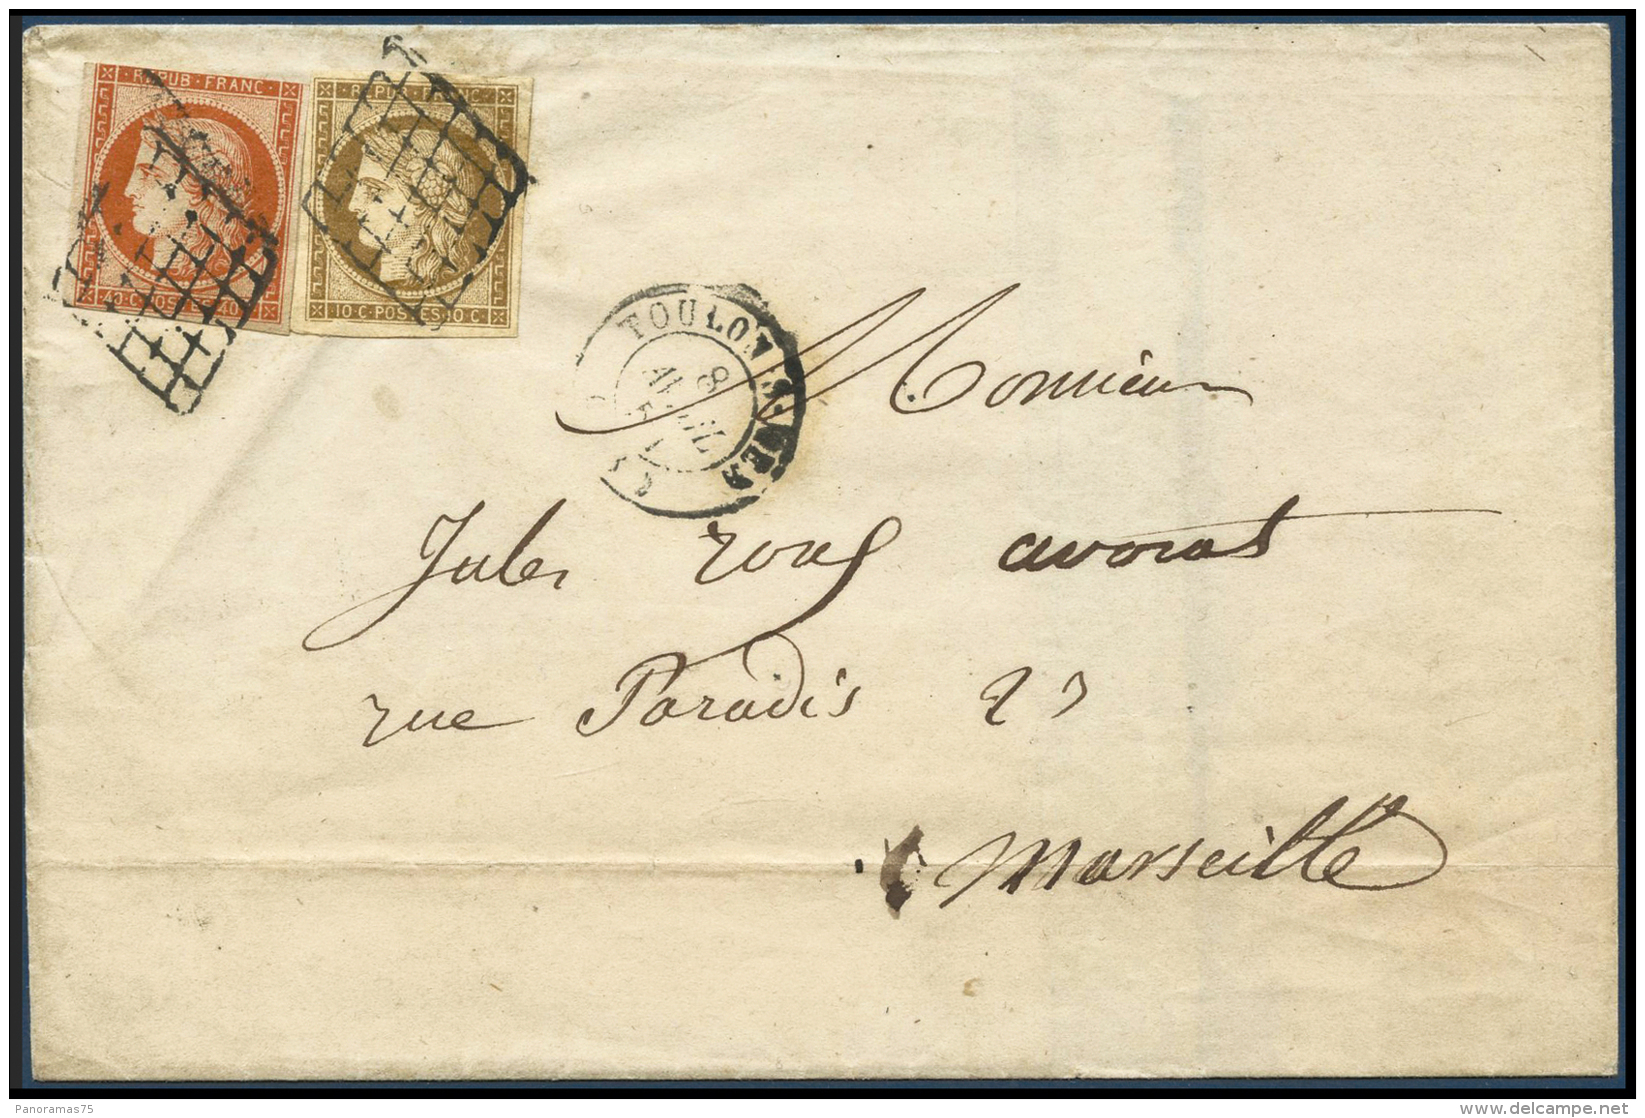 REPUB · FRANC ·
40 · C · POSTES 40
REPUB · FRANC
10 · C · POSTES 10 C ·
TOULON-S-MER
8
AVRIL
51
Monsieur
Jules roux avocat
rue Paradis 23
Marseille
Panoramas75
www.delcampe.net